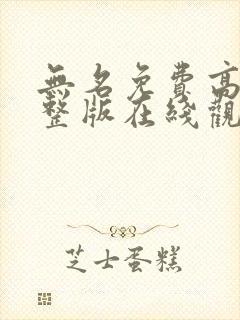 無名免費高
整版在綫觀
芝士蛋糕